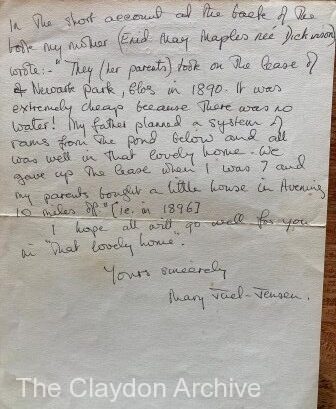 In the short account at the back of the
book my mother (Enid May Maples nee Dickinson
wrote:- "They (her parents) took on the lease of
Newark Park, Glos in 1890. It was
extremely cheap because there was no
water! My father planned a system of
rams from the pond below and all
was well in that lovely home. We
gave up the lease when I was 7 and
my parents bought a little house in Avening
10 miles off" [ie. in 1896]
I hope all will go well for you
in "that lovely home".
Yours sincerely
Mary Juel-Jensen.
The Claydon Archive